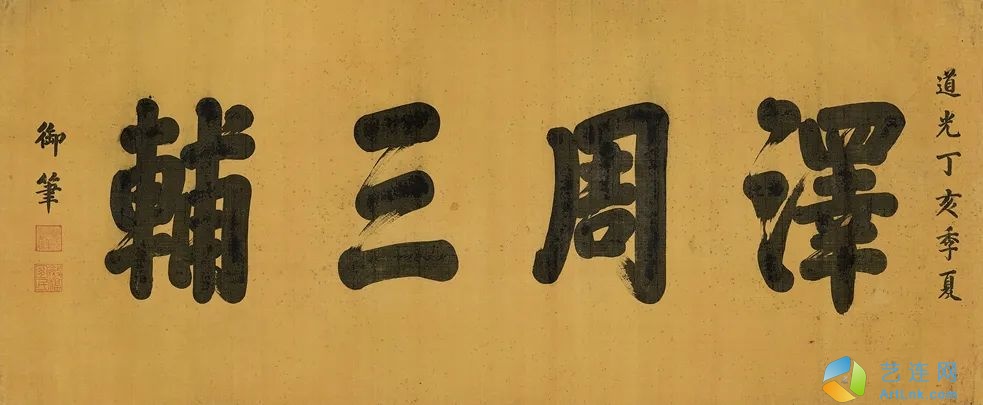 道光丁亥季夏
澤周三輔
御筆
艺连网
ArtLink.com